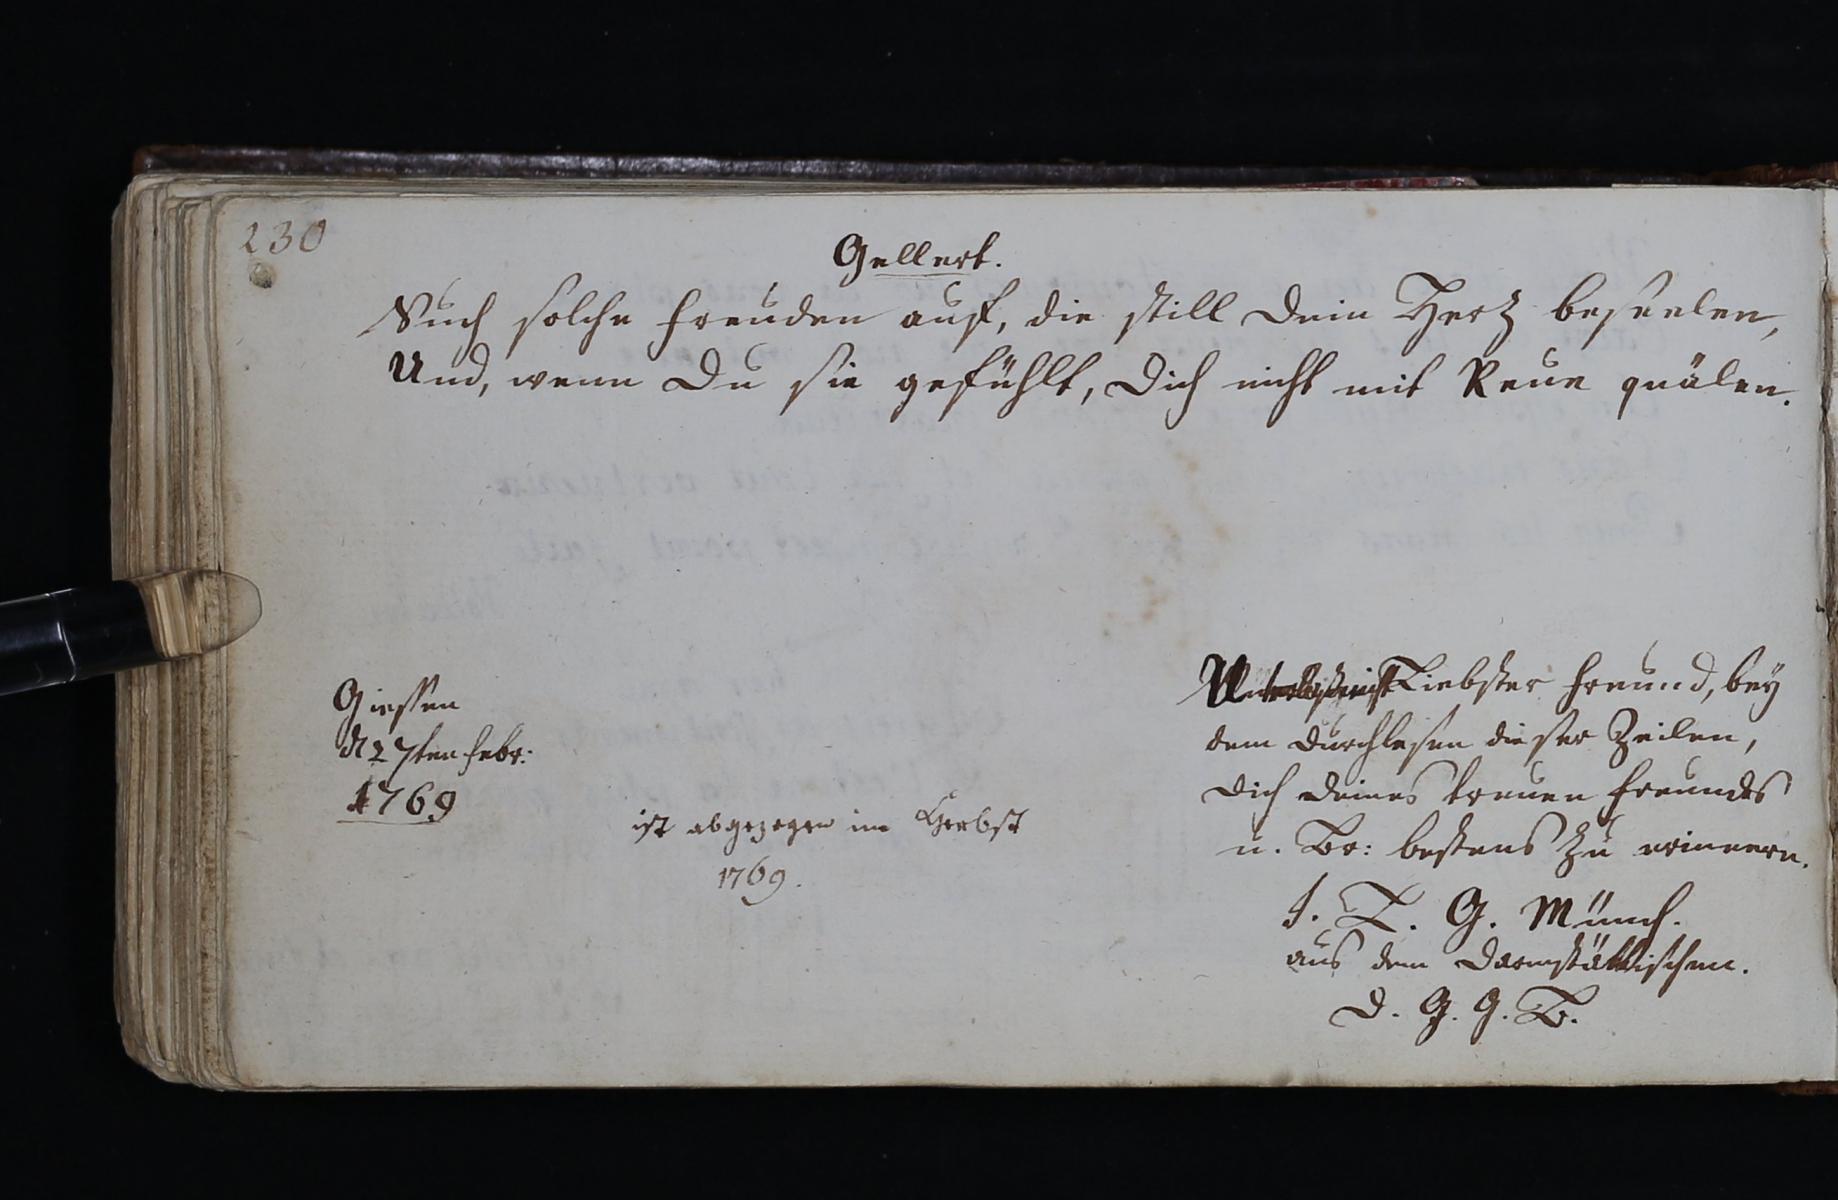 230
Gellert.
Such solche Freuden auf, die still Dein Hertz beseelen,
Und, wenn Du sie gefühlt, Dich nicht mit Reue quälen.
Giessen
d 27sten Febr.
1769
ist abgezogen im Herbst
1769.
Liebster Freund, bey
dem Durchlesen dieser Zeilen,
Dich Deines treuen Freundes
u. Br: bestens zu erinnern.
J. L. G. Münch.
aus dem Darmstättischen.
D. G. G. B.